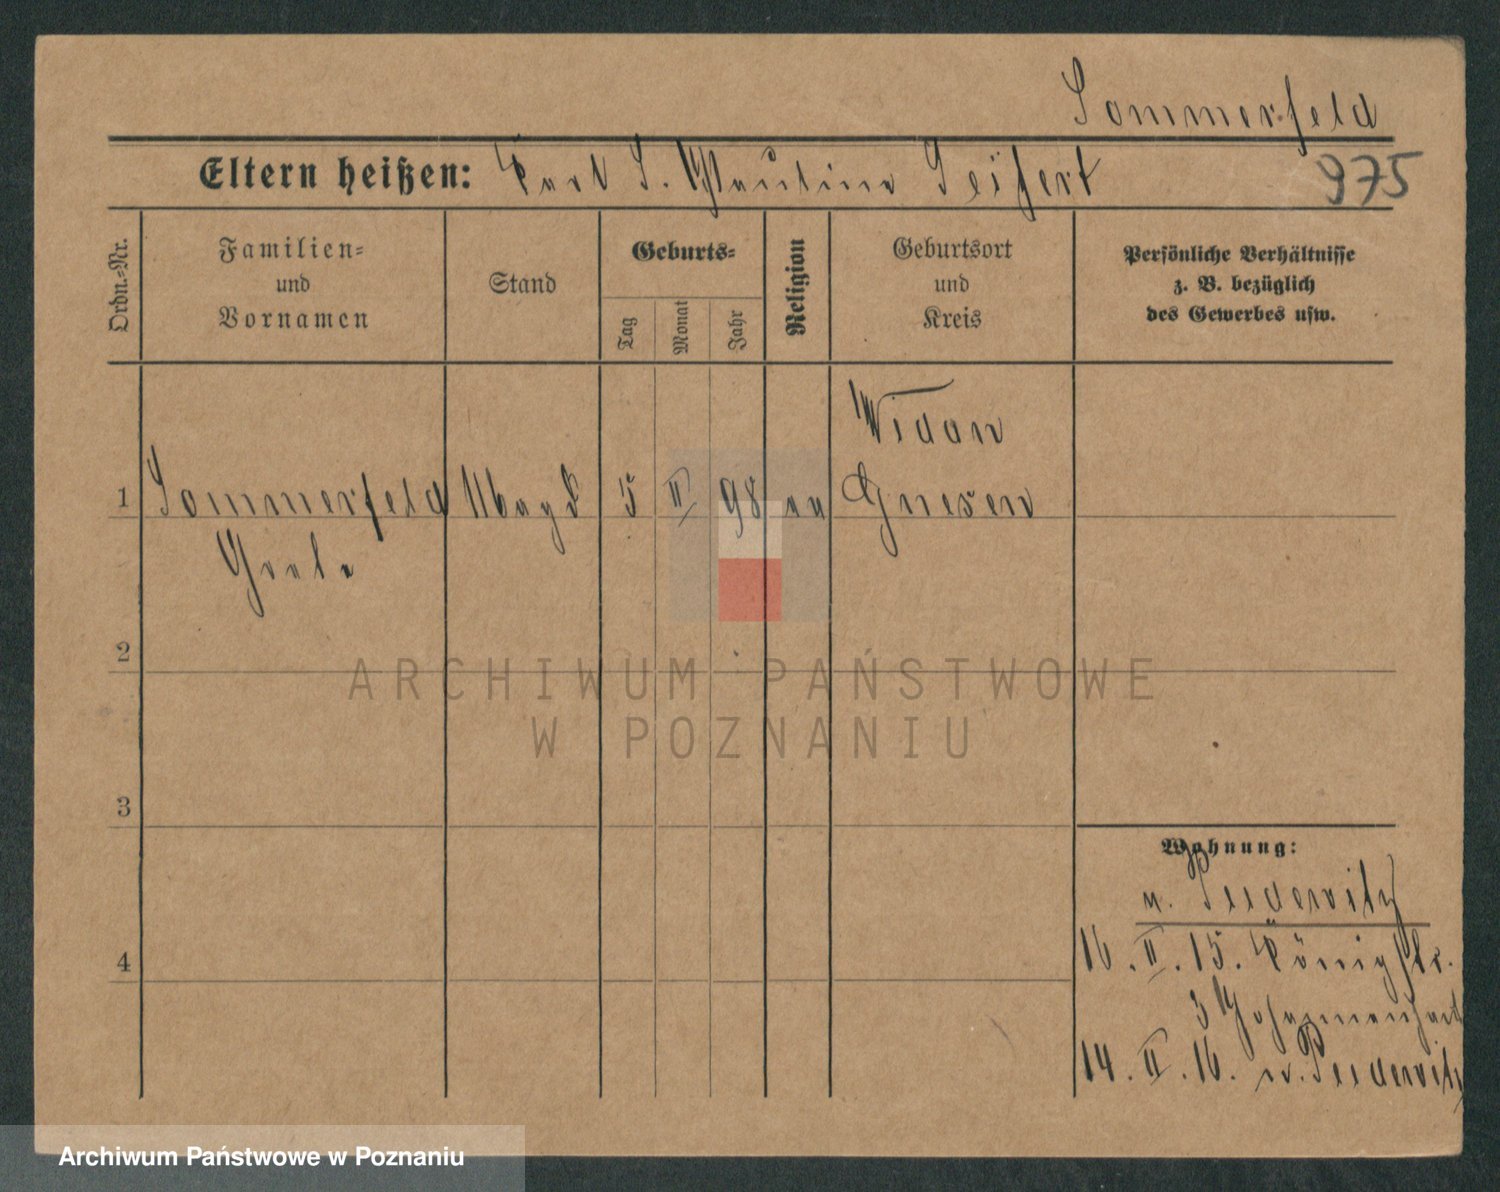 Sommerfeld
Eltern heißen: Karl S. Pauline Seifert 975
Ordn.-Nr.
Familien-
und
Vornamen
Stand
Geburts-
Tag
Monat
Jahr
Religion
Geburtsort
und
Kreis
Persönliche Verhältnisse
z. B. bezüglich
des Gewerbes usw.
Widau
1 Sommerfeld Magd 5 II 98 Gnesen
2
3
4
Wohnung:
16. II. 15. Königstr.
3
14. II. 16.
ARCHIWUM PAŃSTWOWE
W POZNANIU
Archiwum Państwowe w Poznaniu